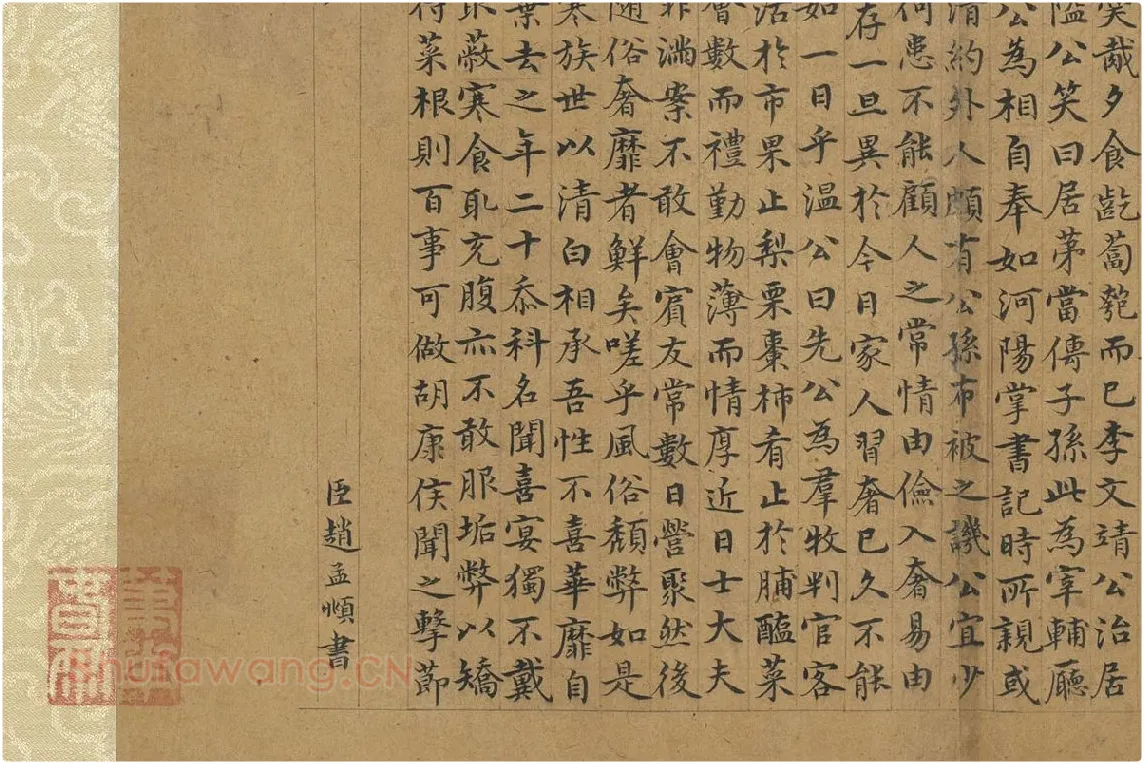 笑哉夕食齕蔔匏而已李文靖公治居
隘公笑曰居茅當傳子孫此為宰輔廳
公為相自奉如河陽掌書記時所親或
清約外人頗有公孫布被之譏公宜少
何患不能顧人之常情由儉入奢易由
存一旦異於今日家人習奢已久不能
如一日乎溫公曰先公為羣牧判官客
沽於市果止梨栗棗柿肴止於脯醢菜
會數而禮勤物薄而情厚近日士大夫
非滿案不敢會賓友常數日營聚然後
隨俗奢靡者鮮矣嗟乎風俗頹弊如是
寒族世以清白相承吾性不喜華靡自
棄去之年二十忝科名聞喜宴獨不戴
取蔽寒食取充腹亦不敢服垢弊以矯
菜根則百事可做胡康侯聞之擊節
臣趙孟頫書
shufawang.CN